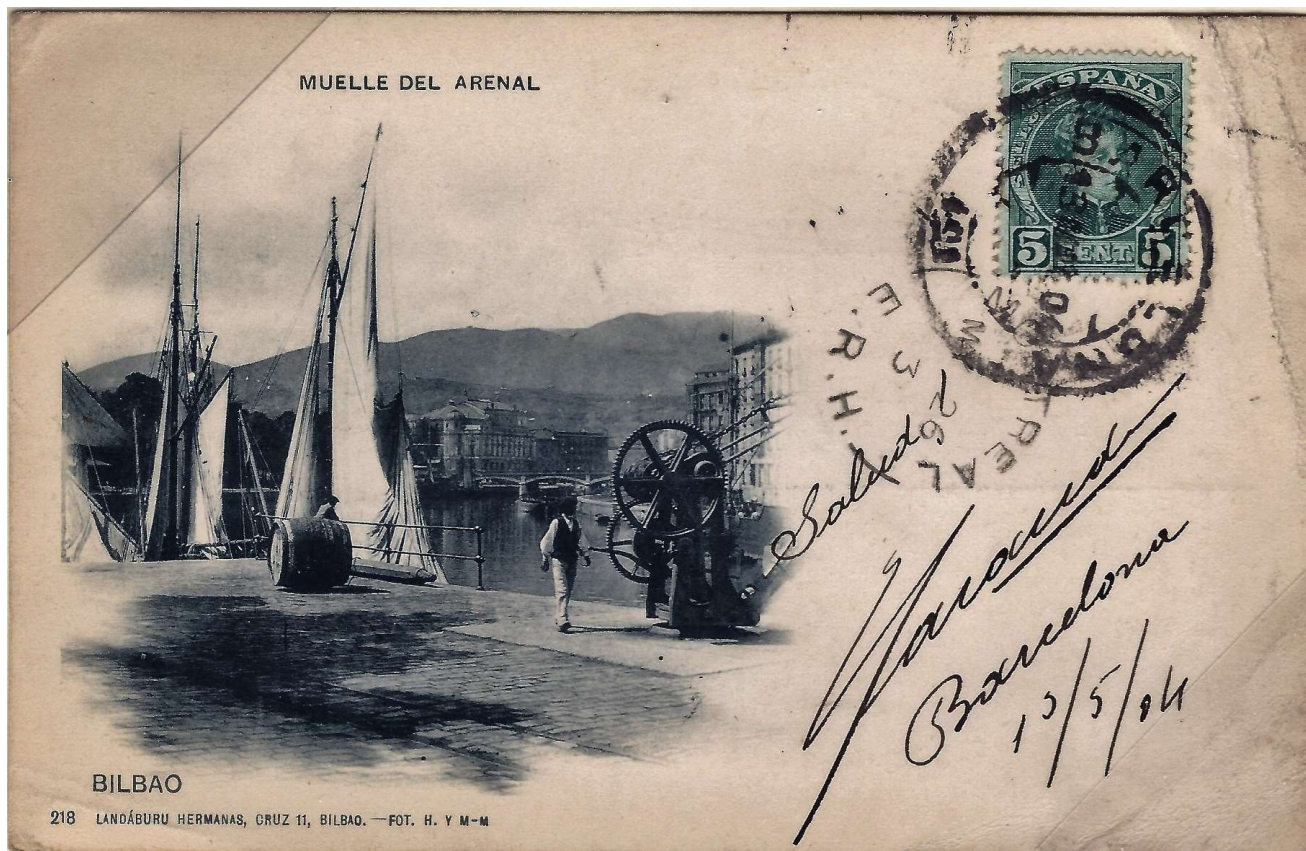 MUELLE DEL ARENAL
ESPAÑA
5 CENT 5
BARCELONA
MONTREAL
E 3 26
E.R.H.
Salud
Barcelona
13/5/04
BILBAO
218 LANDÁBURU HERMANAS, CRUZ 11, BILBAO. — FOT. H. Y M-M